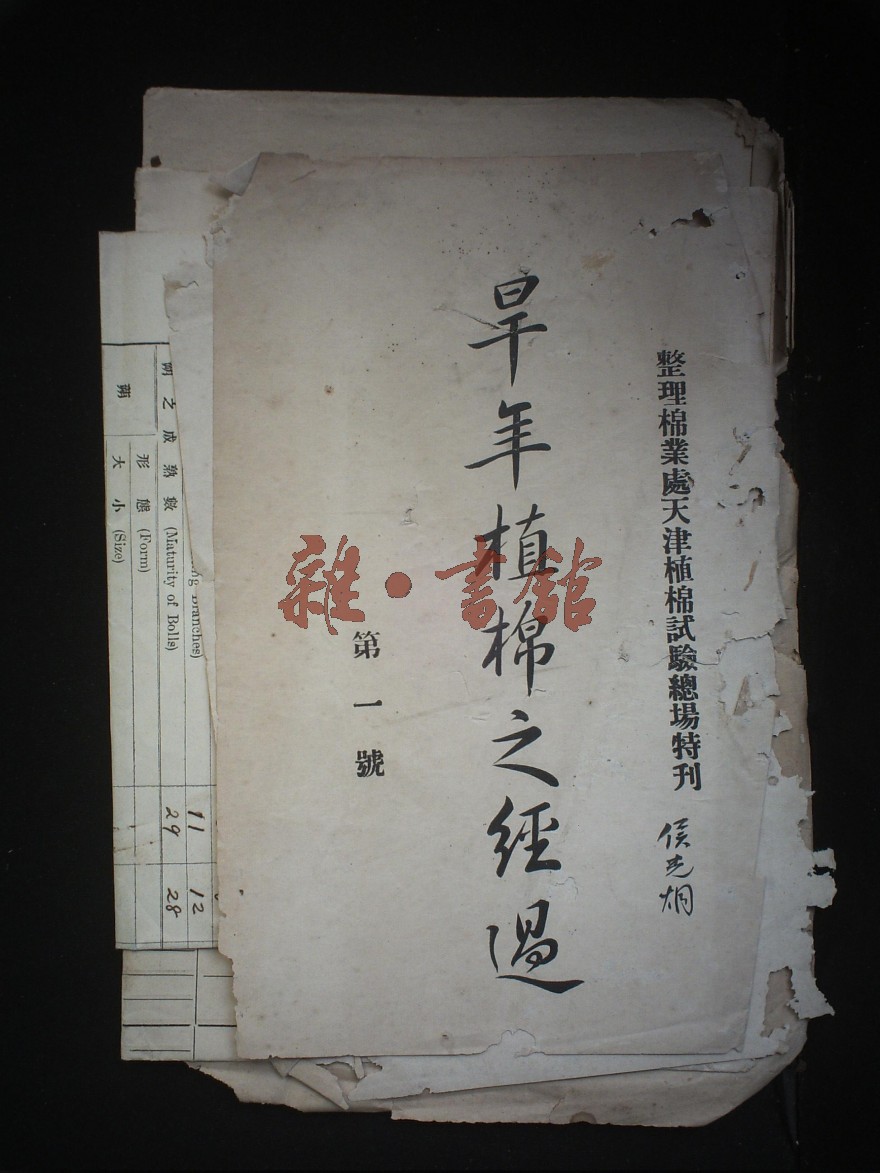 整理棉業處天津植棉試驗總場特刊
侯光炯
旱年植棉之經過
第一號
雜·書館
ng Branches)
11 12
萌之成熟數 (Maturity of Bolls)
29 28
蒴
形態 (Form)
大小 (Size)